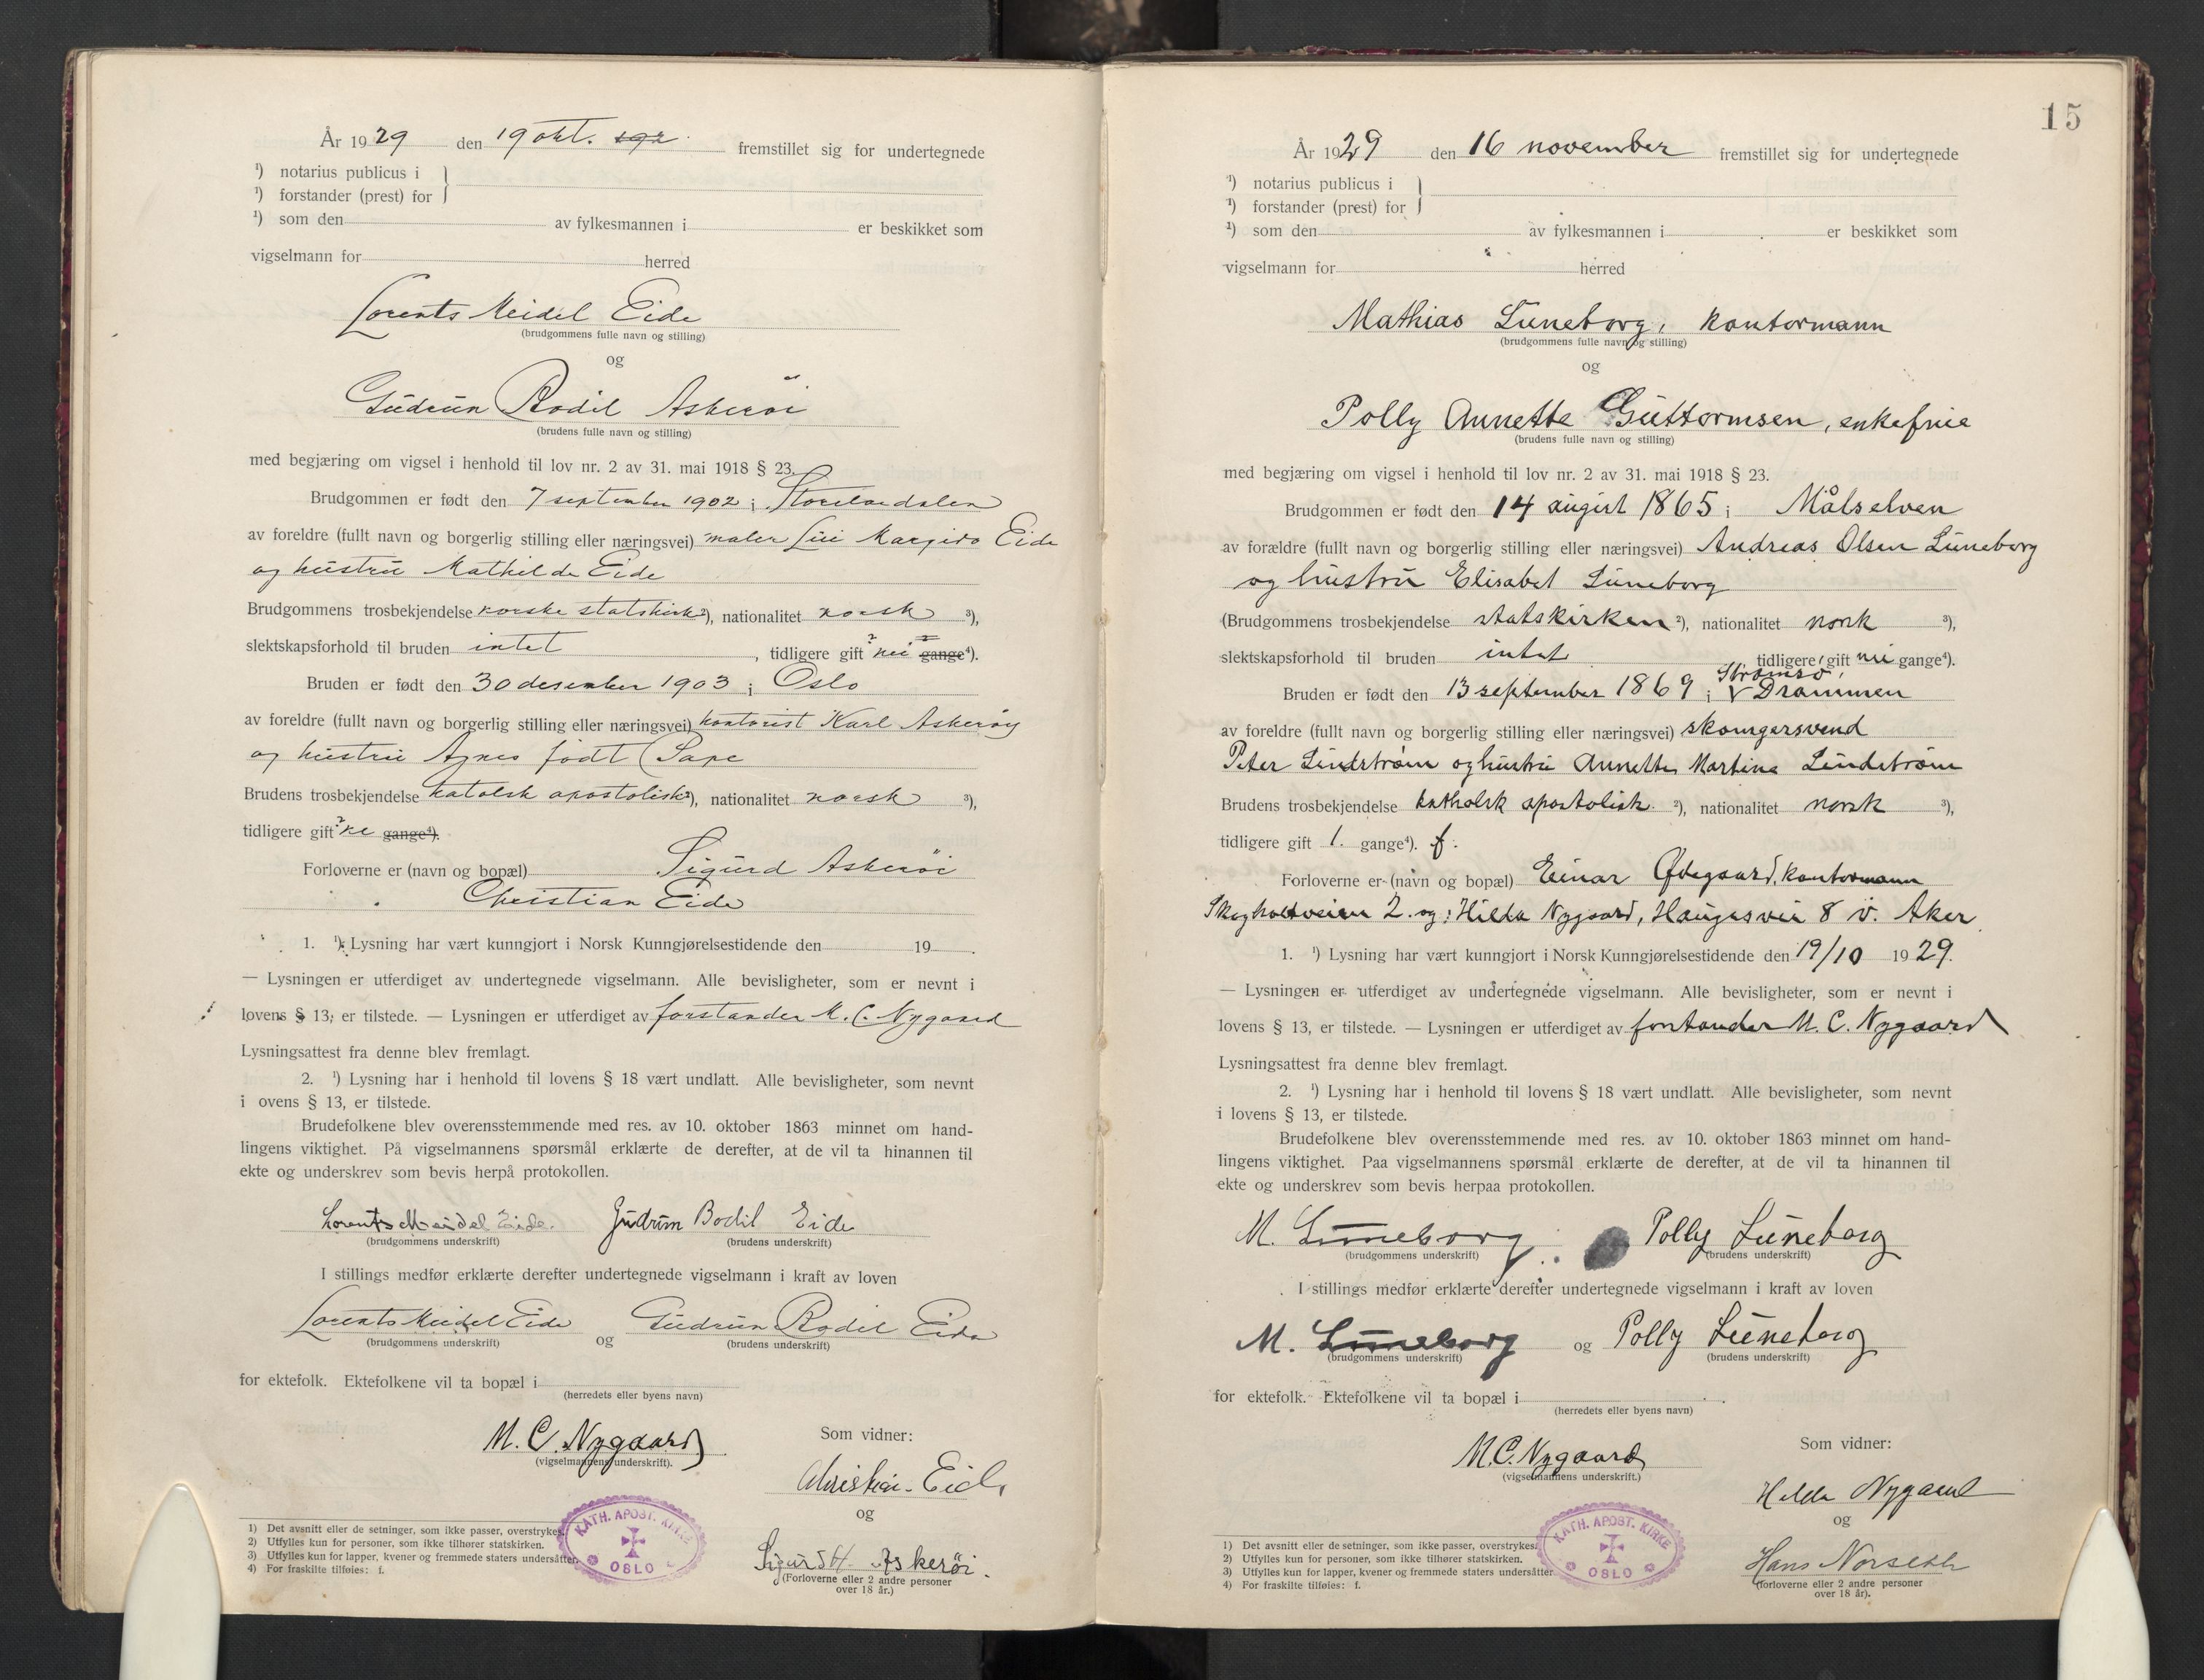 År 1929 den 19 okt. fremstillet sig for undertegnede
¹) notarius publicus i
¹) forstander (prest) for
¹) som den av fylkesmannen i er beskikket som
vigselmann for herred
Lorents Meidel Eide
(brudgommens fulle navn og stilling)
og
Gudrun Bodil Askerøi
(brudens fulle navn og stilling)
med begjæring om vigsel i henhold til lov nr. 2 av 31. mai 1918 § 23.
Brudgommen er født den 7 september 1902 i
av foreldre (fullt navn og borgerlig stilling eller næringsvei) maler Eide
og hustru Mathilde Eide
Brudgommens trosbekjendelse norske statskirk ²), nationalitet norsk ³),
slektskapsforhold til bruden intet, tidligere gift nei gange⁴).
Bruden er født den 30 desember 1903 i Oslo
av foreldre (fullt navn og borgerlig stilling eller næringsvei) kontorist Karl Askerøy
og hustru Agnes født
Brudens trosbekjendelse katolsk apostolisk ²), nationalitet norsk ³),
tidligere gift gange⁴).
Forloverne er (navn og bopæl) Sigurd Askerøi
Christian Eide
1. ¹) Lysning har vært kunngjort i Norsk Kunngjørelsestidende den 19 .
— Lysningen er utferdiget av undertegnede vigselmann. Alle bevisligheter, som er nevnt i
lovens § 13, er tilstede. — Lysningen er utferdiget av forstander M. C. Nygaard
Lysningsattest fra denne blev fremlagt.
2. ¹) Lysning har i henhold til lovens § 18 vært undlatt. Alle bevisligheter, som nevnt
i ovens § 13, er tilstede.
Brudefolkene blev overensstemmende med res. av 10. oktober 1863 minnet om hand-
lingens viktighet. På vigselmannens spørsmål erklærte de derefter, at de vil ta hinannen til
ekte og underskrev som bevis herpå protokollen.
Lorents Meidel Eide. Gudrun Bodil Eide
(brudgommens underskrift) (brudens underskrift)
I stillings medfør erklærte derefter undertegnede vigselmann i kraft av loven
Lorents Meidel Eide og Gudrun Bodil Eide
(brudgommens underskrift) (brudens underskrift)
for ektefolk. Ektefolkene vil ta bopæl i
(herredets eller byens navn)
M. C. Nygaard
(vigselmannens underskrift).
Som vidner:
Christian Eide
og
Sigurd H. Askerøi.
(Forloverne eller 2 andre personer
over 18 år.)
1) Det avsnitt eller de setninger, som ikke passer, overstrykes.
2) Utfylles kun for personer, som ikke tilhører statskirken.
3) Utfylles kun for lapper, kvener og fremmede staters undersåtter.
4) For fraskilte tilføies: f.
KATH. APOST. KIRKE
OSLO
15
År 1929 den 16 november fremstillet sig for undertegnede
¹) notarius publicus i
¹) forstander (prest) for
¹) som den av fylkesmannen i er beskikket som
vigselmann for herred
Mathias Luneborg, kontormann
(brudgommens fulle navn og stilling)
og
Polly Annette Guttormsen, enkefrue
(brudens fulle navn og stilling)
med begjæring om vigsel i henhold til lov nr. 2 av 31. mai 1918 § 23.
Brudgommen er født den 14 august 1865 i Målselven
av forældre (fullt navn og borgerlig stilling eller næringsvei) Andreas Olsen Luneborg
og hustru Elisabet Luneborg
(Brudgommens trosbekjendelse statskirken ²), nationalitet norsk ³),
slektskapsforhold til bruden intet tidligere gift nei gange⁴).
Strømsø,
Bruden er født den 13 september 1869 i Drammen
av foreldre (fullt navn og borgerlig stilling eller næringsvei)
Peter Lindstrøm og hustru Annette Martina Lindstrøm
Brudens trosbekjendelse katholsk apostolisk. ²), nationalitet norsk ³),
tidligere gift 1. gange⁴). f.
Forloverne er (navn og bopæl) Einar Ødegaard, kontormann
Skogholtveien 2. og Hilda Nygaard, Haugesvei 8 v. Aker
1. ¹) Lysning har vært kunngjort i Norsk Kunngjørelsestidende den 19/10 1929.
— Lysningen er utferdiget av undertegnede vigselmann. Alle bevisligheter, som er nevnt i
lovens § 13, er tilstede. — Lysningen er utferdiget av forstander M. C. Nygaard
Lysningsattest fra denne blev fremlagt.
2. ¹) Lysning har i henhold til lovens § 18 vært undlatt. Alle bevisligheter, som nevnt
i lovens § 13, er tilstede.
Brudefolkene blev overensstemmende med res. av 10. oktober 1863 minnet om hand-
lingens viktighet. Paa vigselmannens spørsmål erklærte de derefter, at de vil ta hinannen til
ekte og underskrev som bevis herpaa protokollen.
M. Luneborg Polly Luneborg
(brudgommens underskrift) (brudens underskrift)
I stillings medfør erklærte derefter undertegnede vigselmann i kraft av loven
M. Luneborg og Polly Luneborg
(brudgommens underskrift) (brudens underskrift)
for ektefolk. Ektefolkene vil ta bopæl i
(herredets eller byens navn)
M. C. Nygaard
(vigselmannens underskrift.)
Som vidner:
Hilda Nygaard
og
Hans Norseth
(forloverne eller 2 andre personer
over 18 år).
1) Det avsnitt eller de setninger, som ikke passer, overstrykes.
2) Utfylles kun for personer, som ikke tilhører statskirken.
3) Utfylles kun for lapper, kvener og fremmede staters undersåtter
4) For fraskilte tilføies: f.
KATH. APOST. KIRKE
OSLO